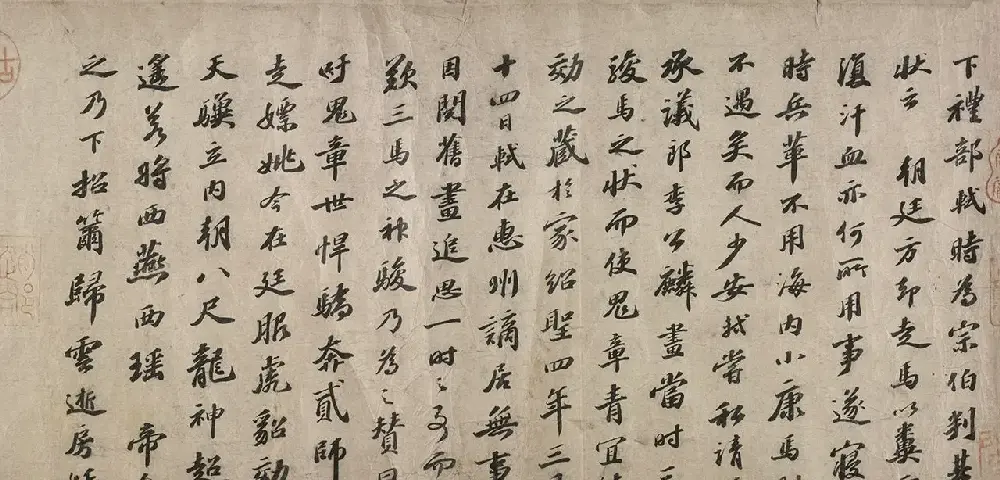 下禮部軾時為宗伯判其
狀云 朝廷方却走馬以糞
滇汗血亦何所用事遂寢
時兵革不用海內小康馬
不遇矣而人少安軾嘗私請
承議郎李公麟畫當時三
駿馬之狀而使鬼章青宜
効之藏於家紹聖四年三月
十四日軾在惠州謫居無事
因閱舊畫追思一時之事而
歎三馬之神駿乃為之贊曰
吁鬼章世悍驕奔貳師
走嫖姚今在廷服虎貂効
天驥立內朝八尺龍神超
遙若將西燕西瑤帝
之乃下招籋歸雲逝房